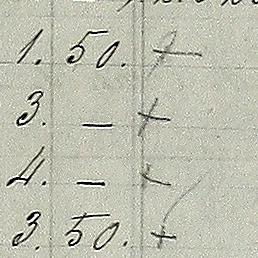 1. 50. +
3. — +
4. — +
3. 50. +